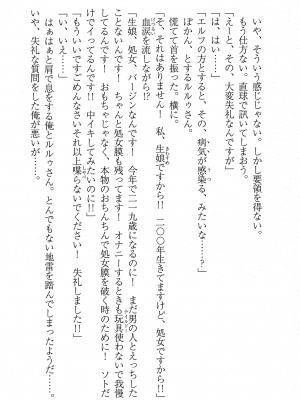 いや、そういう感じじゃない。しかし要領を得ない。
もう仕方ない。直球で訊いてしまおう。
「えーと、その、大変失礼なんですが」
「は、はい……」
「エルフの方とすると、その、病気が感染る、みたいな……？」
ぽかん、とするルルゥさん。
慌てて首を振った。横に。
「そ、それはありません！　私、生娘ですから!!　二〇〇年生きてますけど、処女ですから!!」
血涙を流しながら!?
「生娘、処女、バージンなんです！　今年で二一九歳になるのに！　まだ男の人とえっちした
ことないんです！　ちゃんと処女膜も残ってます！　オナニーするときも玩具使わないで我慢
してるんです！　おもちゃじゃなく、本物のおちんちんで処女膜を破く時のために！　ソトだ
けでイってるんです!!　中イキしてみたいのに!!」
「もういいですごめんなさいそれ以上喋らないでください！　失礼しました!!」
「い、いえ……」
はぁはぁと肩で息をする俺とルルゥさん。とんでもない地雷を踏んでしまったようだ……。
いや、失礼な質問をした俺が悪いが……。